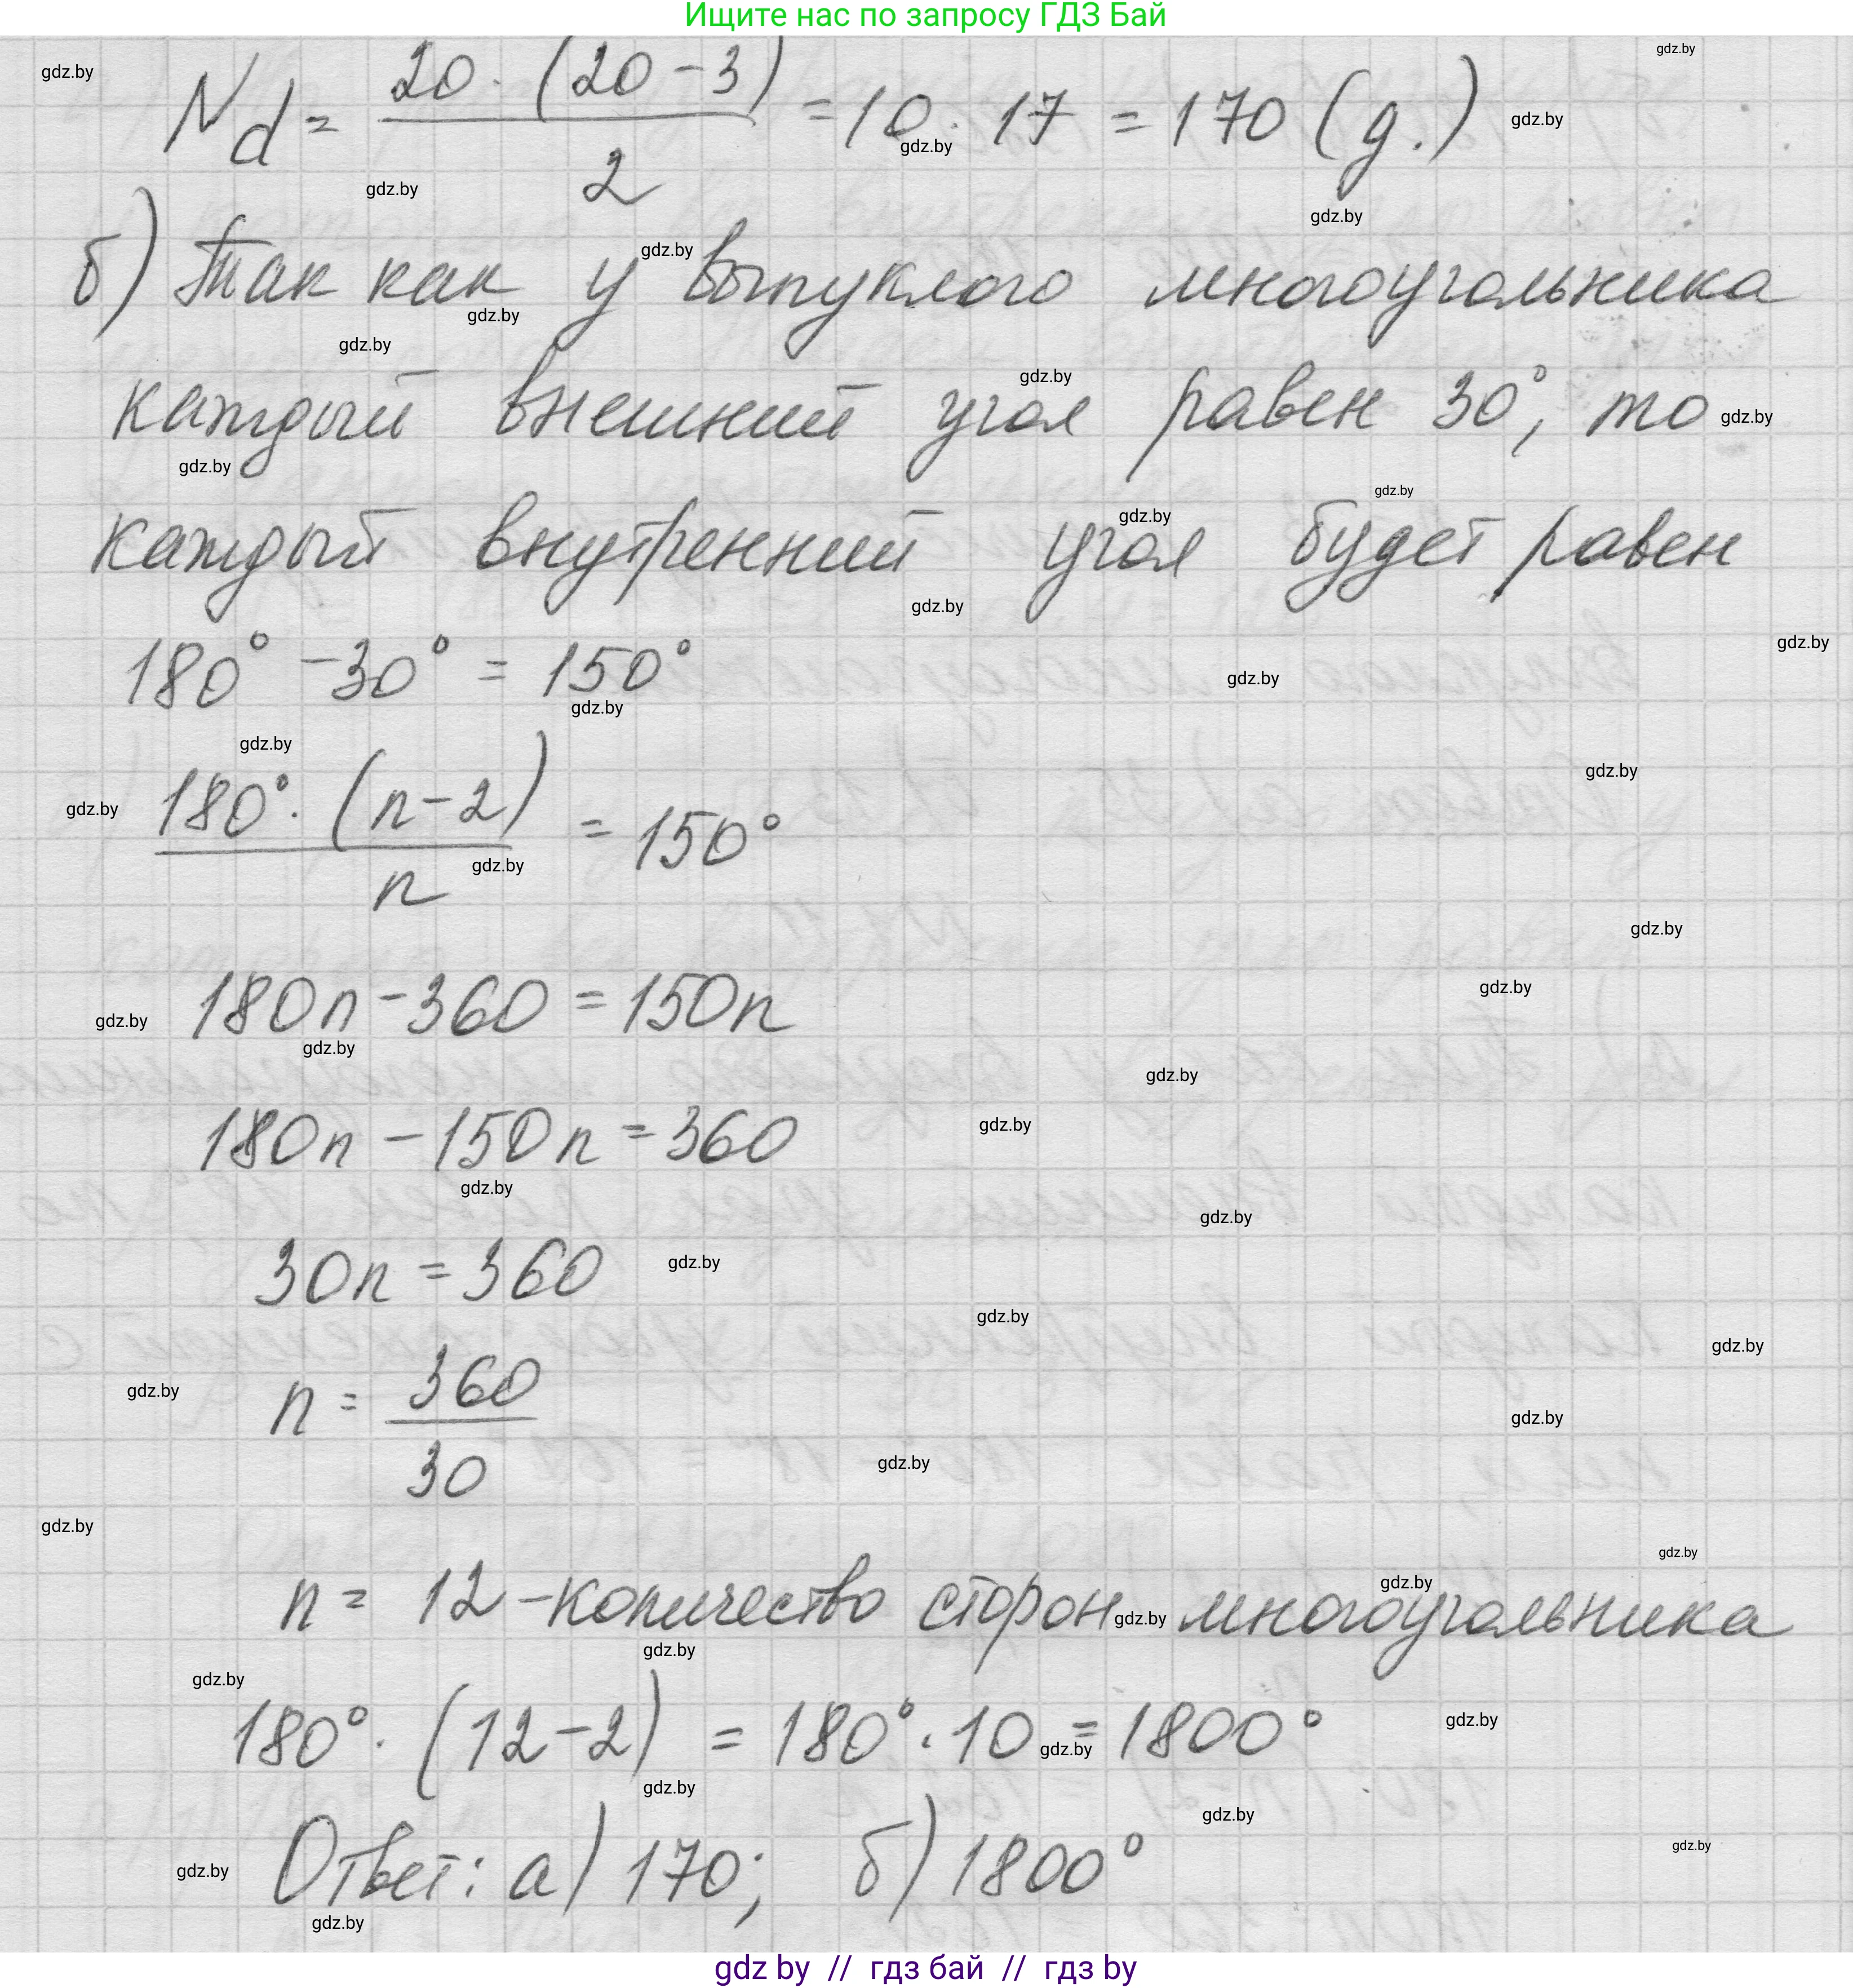 Ищите нас по запросу ГДЗ Бай
N_d = 20 · (20 - 3) / 2 = 10 · 17 = 170 (д.)
б) Так как у выпуклого многоугольника
каждый внешний угол равен 30°, то
каждый внутренний угол будет равен
180° - 30° = 150°
180° · (n - 2) / n = 150°
180n - 360 = 150n
180n - 150n = 360
30n = 360
n = 360 / 30
n = 12 - количество сторон многоугольника
180° · (12 - 2) = 180° · 10 = 1800°
Ответ: а) 170; б) 1800°
gdz by // гдз бай // гдз by